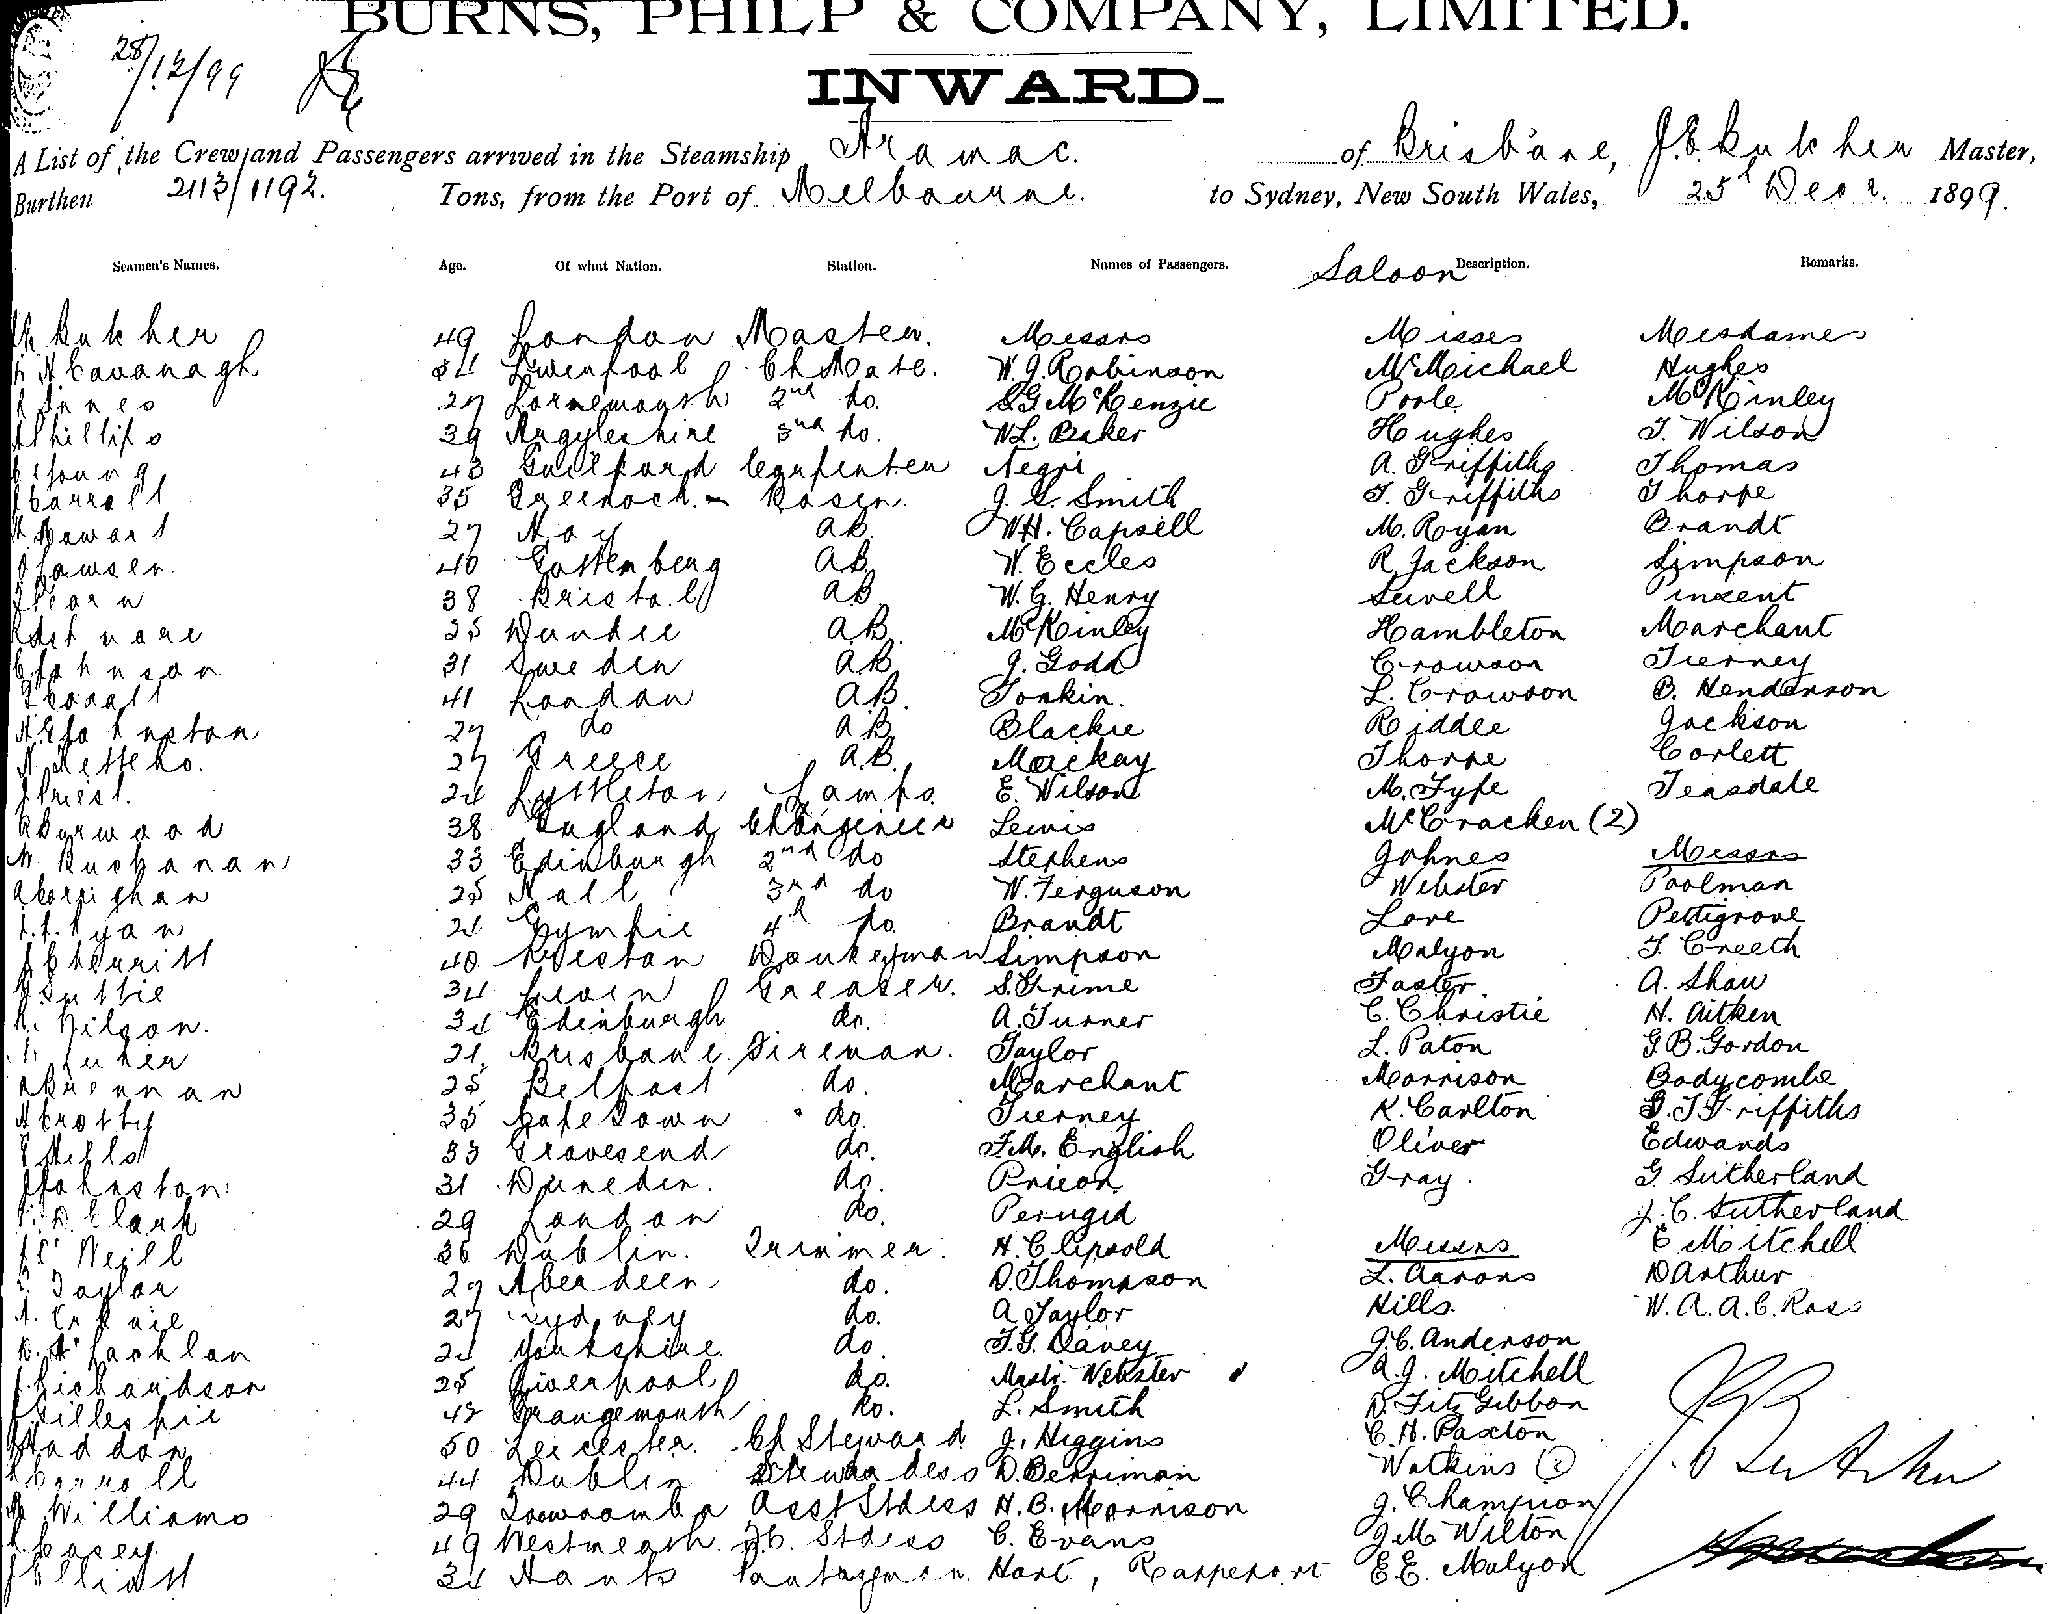 BURNS, PHILP & COMPANY, LIMITED.
28/12/99
INWARD.
A List of the Crew and Passengers arrived in the Steamship Aramac. of Brisbane, J.E. Butcher Master,
Burthen 2113/1192. Tons, from the Port of Melbourne. to Sydney, New South Wales, 25th Decr. 1899.
Seamen's Names. Age. Of what Nation. Station. Names of Passengers. Saloon Description. Remarks.
Butcher 49 London Master. Messrs Misses Mesdames
Cavanagh 34 Liverpool Ch Mate. W. J. Robinson McMichael Hughes
Innes 27 2nd do. S G McKenzie Poole McKinley
Phillips 39 Argyleshire 3rd do. W L. Baker Hughes T. Wilson
Young 43 Guilford Carpenter Negri A. Griffiths Thomas
Carroll 35 Greenock Bosen. J. S. Smith T. Griffiths Thorpe
Howard 27 AB. W H. Capsell M. Ryan Brandt
40 Gottenberg AB W. Eccles R Jackson Simpson
38 Bristol AB W. G. Henry Sewell Pinsent
25 Dundee AB. McKinley Hambleton Marchant
C Johnson 31 Sweden AB J. Godd Crowson Tierney
41 London AB. Tonkin. L. Crowson B. Henderson
Johnston 27 do AB Blackie Riddle Jackson
27 Greece AB. Mackay Thorpe Corlett
Priest. 24 Lyttleton Lamps E. Wilson M. Fyfe Teasdale
Burwood 38 England Ch Engineer Lewis McCracken (2)
Buchanan 33 Edinburgh 2nd do Stephens Johnes Messrs
25 3rd do W. Ferguson Webster Poolman
Ryan 24 Gympie 4th do. Brandt Love Pettigrove
Sherritt 40 Preston Donkeyman Simpson Malyon T. Creeth
Suttie 34 Leven Greaser. S. Grime Foster. A. Shaw
Wilson. 34 Edinburgh do. A. Turner C. Christie H. Aitken
21 Brisbane. Fireman. Taylor L. Paton G. B. Gordon
Brennan 25 Belfast do. Marchant Morrison Bodycombe
Crotty 35 Cape Town do. Tierney K. Carlton G. T Griffiths
Mills 33 Gravesend do. F. M. English Oliver Edwards
Johnston 31 Dunedin. do. Prieon Gray. G Sutherland
Clark 29 London do. Perugid J. C. Sutherland
Neill 36 Dublin. Trimmer. H. Clipsold Messrs E Mitchell
Taylor 27 Aberdeen do. D. Thompson L. Aarons D Arthur
27 Sydney do. A Taylor Hills. W. A. A. C. Ross
McLachlan 24 Yorkshire do. F. G. Davey J. C. Anderson
Richardson 25 Liverpool do. Mastr. Webster A. J. Mitchell
Gillespie 42 Grangemouth do. L. Smith D. Fitz Gibbon
Haddon 50 Leicester. Ch Steward J. Higgins C. H. Paxton
Carroll 44 Dublin Stewardess D. Berriman Watkins (2)
Williams 29 Toowoomba Asst Stdess H. B. Morrison J. Champion
Casey 49 Westmeath Stdess C. Evans J M Wilton
Elliott 34 Hants Pantryman Hart, Rappeport E. E. Malyon
J. E. Butcher